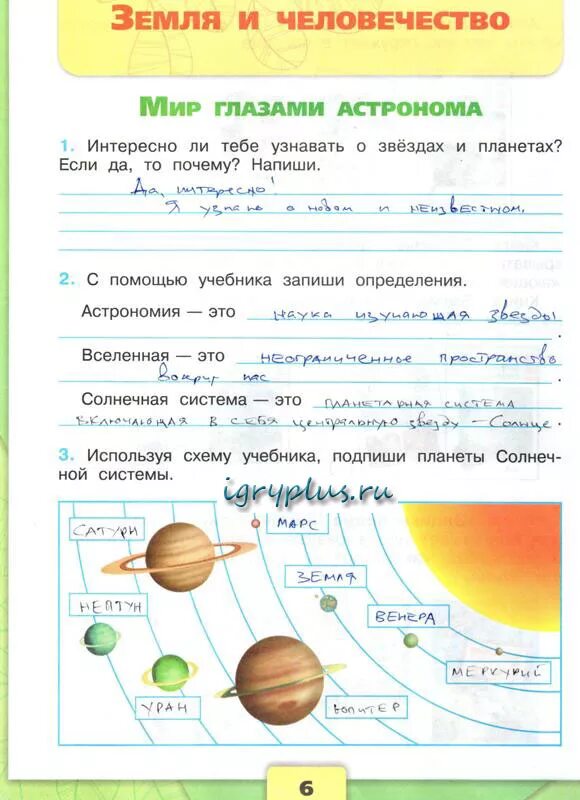 ЗЕМЛЯ И ЧЕЛОВЕЧЕСТВО
МИР ГЛАЗАМИ АСТРОНОМА
1. Интересно ли тебе узнавать о звёздах и планетах?
Если да, то почему? Напиши.
Да, интересно!
Я узнаю о новом и неизвестном.
2. С помощью учебника запиши определения.
Астрономия — это наука изучающая звезды
.
Вселенная — это неограниченное пространство
вокруг нас
Солнечная система — это планетарная система
включающая в себя центральную звезду – Солнце.
3. Используя схему учебника, подпиши планеты Солнеч-
ной системы.
igryplus.ru
САТУРН
МАРС
ЗЕМЛЯ
НЕПТУН
ВЕНЕРА
МЕРКУРИЙ
УРАН
ЮПИТЕР
6